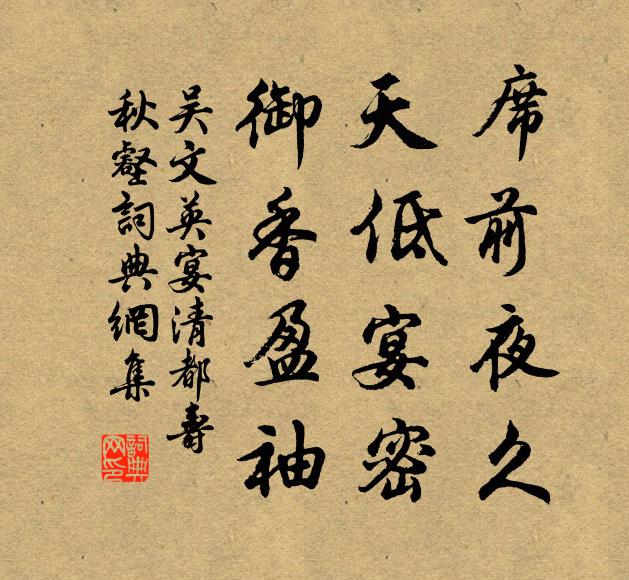 席前夜久
天低宴密
御香盈袖
吴文英宴清都寿
秋壑詞典網集
詞典
网印